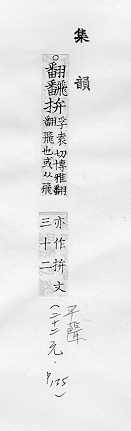 集韻
。翻䎙拚孚袁切博雅翻
翻飛也或从飛
亦作拚文
三十二
平聲
(二十二元.P.125)